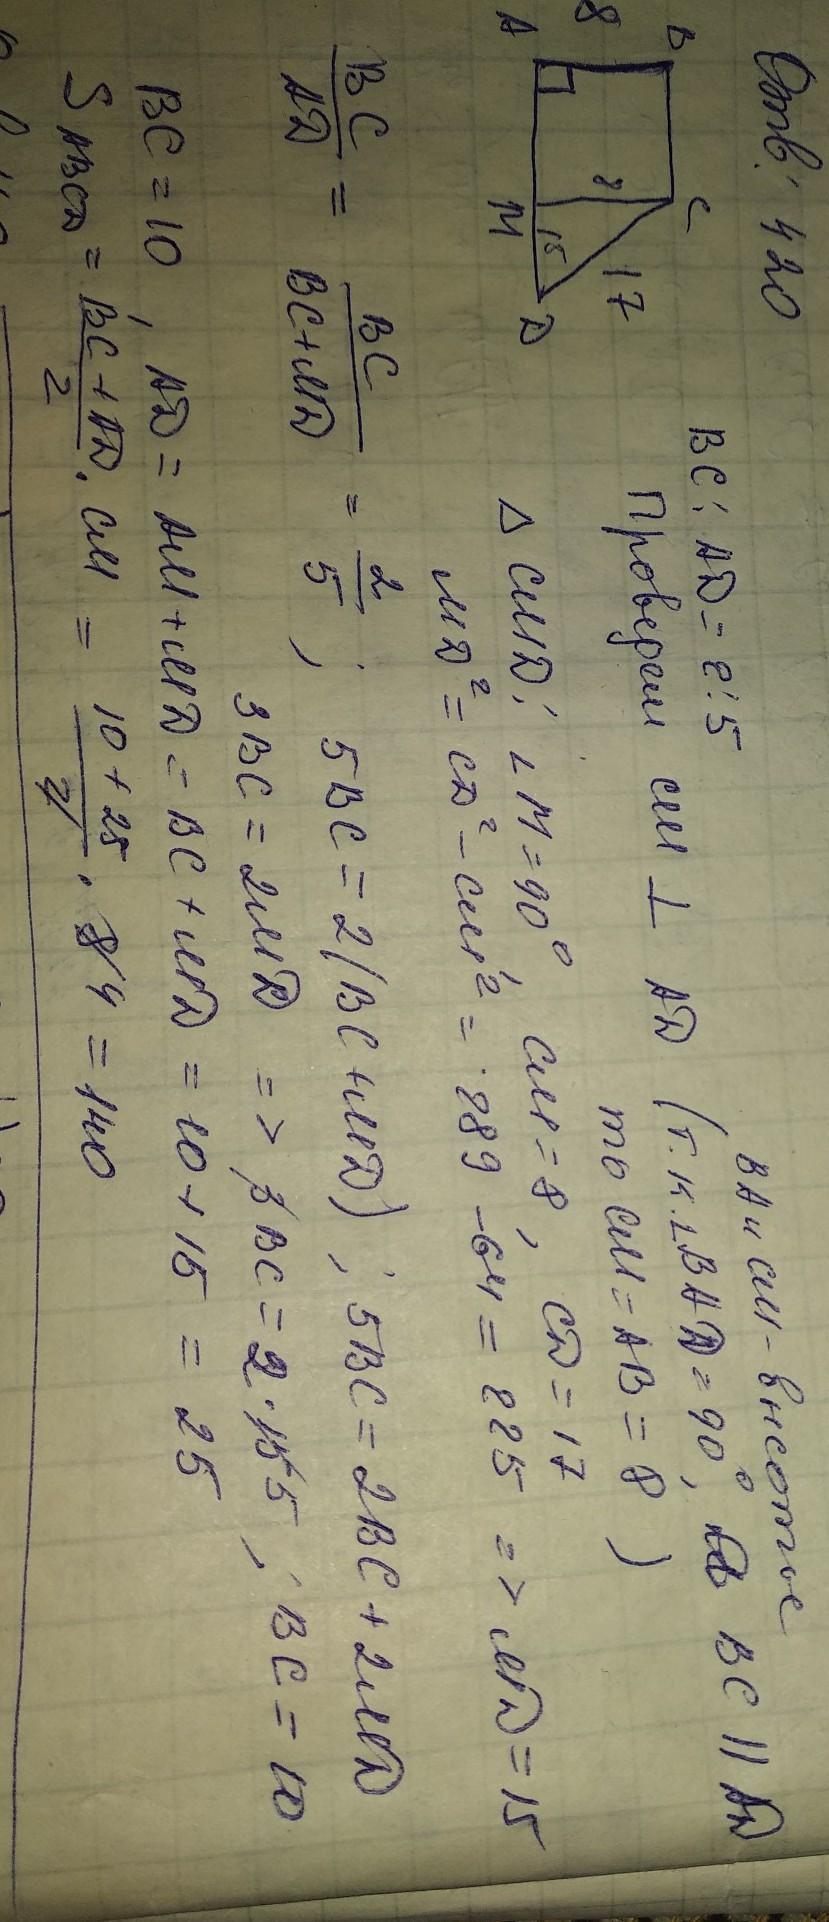 Отв: 420
B
C
8
8
17
15
A
M
D
BC : AD = 2 : 5
BA и CM - высоты
Проведем CM ⊥ AD (т.к. ∠BAD = 90°, BC || AD
то CM = AB = 8)
△ CMD: ∠M = 90° CM = 8, CD = 17
MD² = CD² - CM² = 289 - 64 = 225 => MD = 15
BC/AD = BC/BC+MD = 2/5 ; 5BC = 2(BC+MD) ; 5BC = 2BC + 2MD
3BC = 2MD => 3BC = 2·15 5 ; BC = 10
BC = 10 , AD = AM + MD = BC + MD = 10 + 15 = 25
S ABCD = BC + AD/2 · CM = 10 + 25/2 · 8 4 = 140